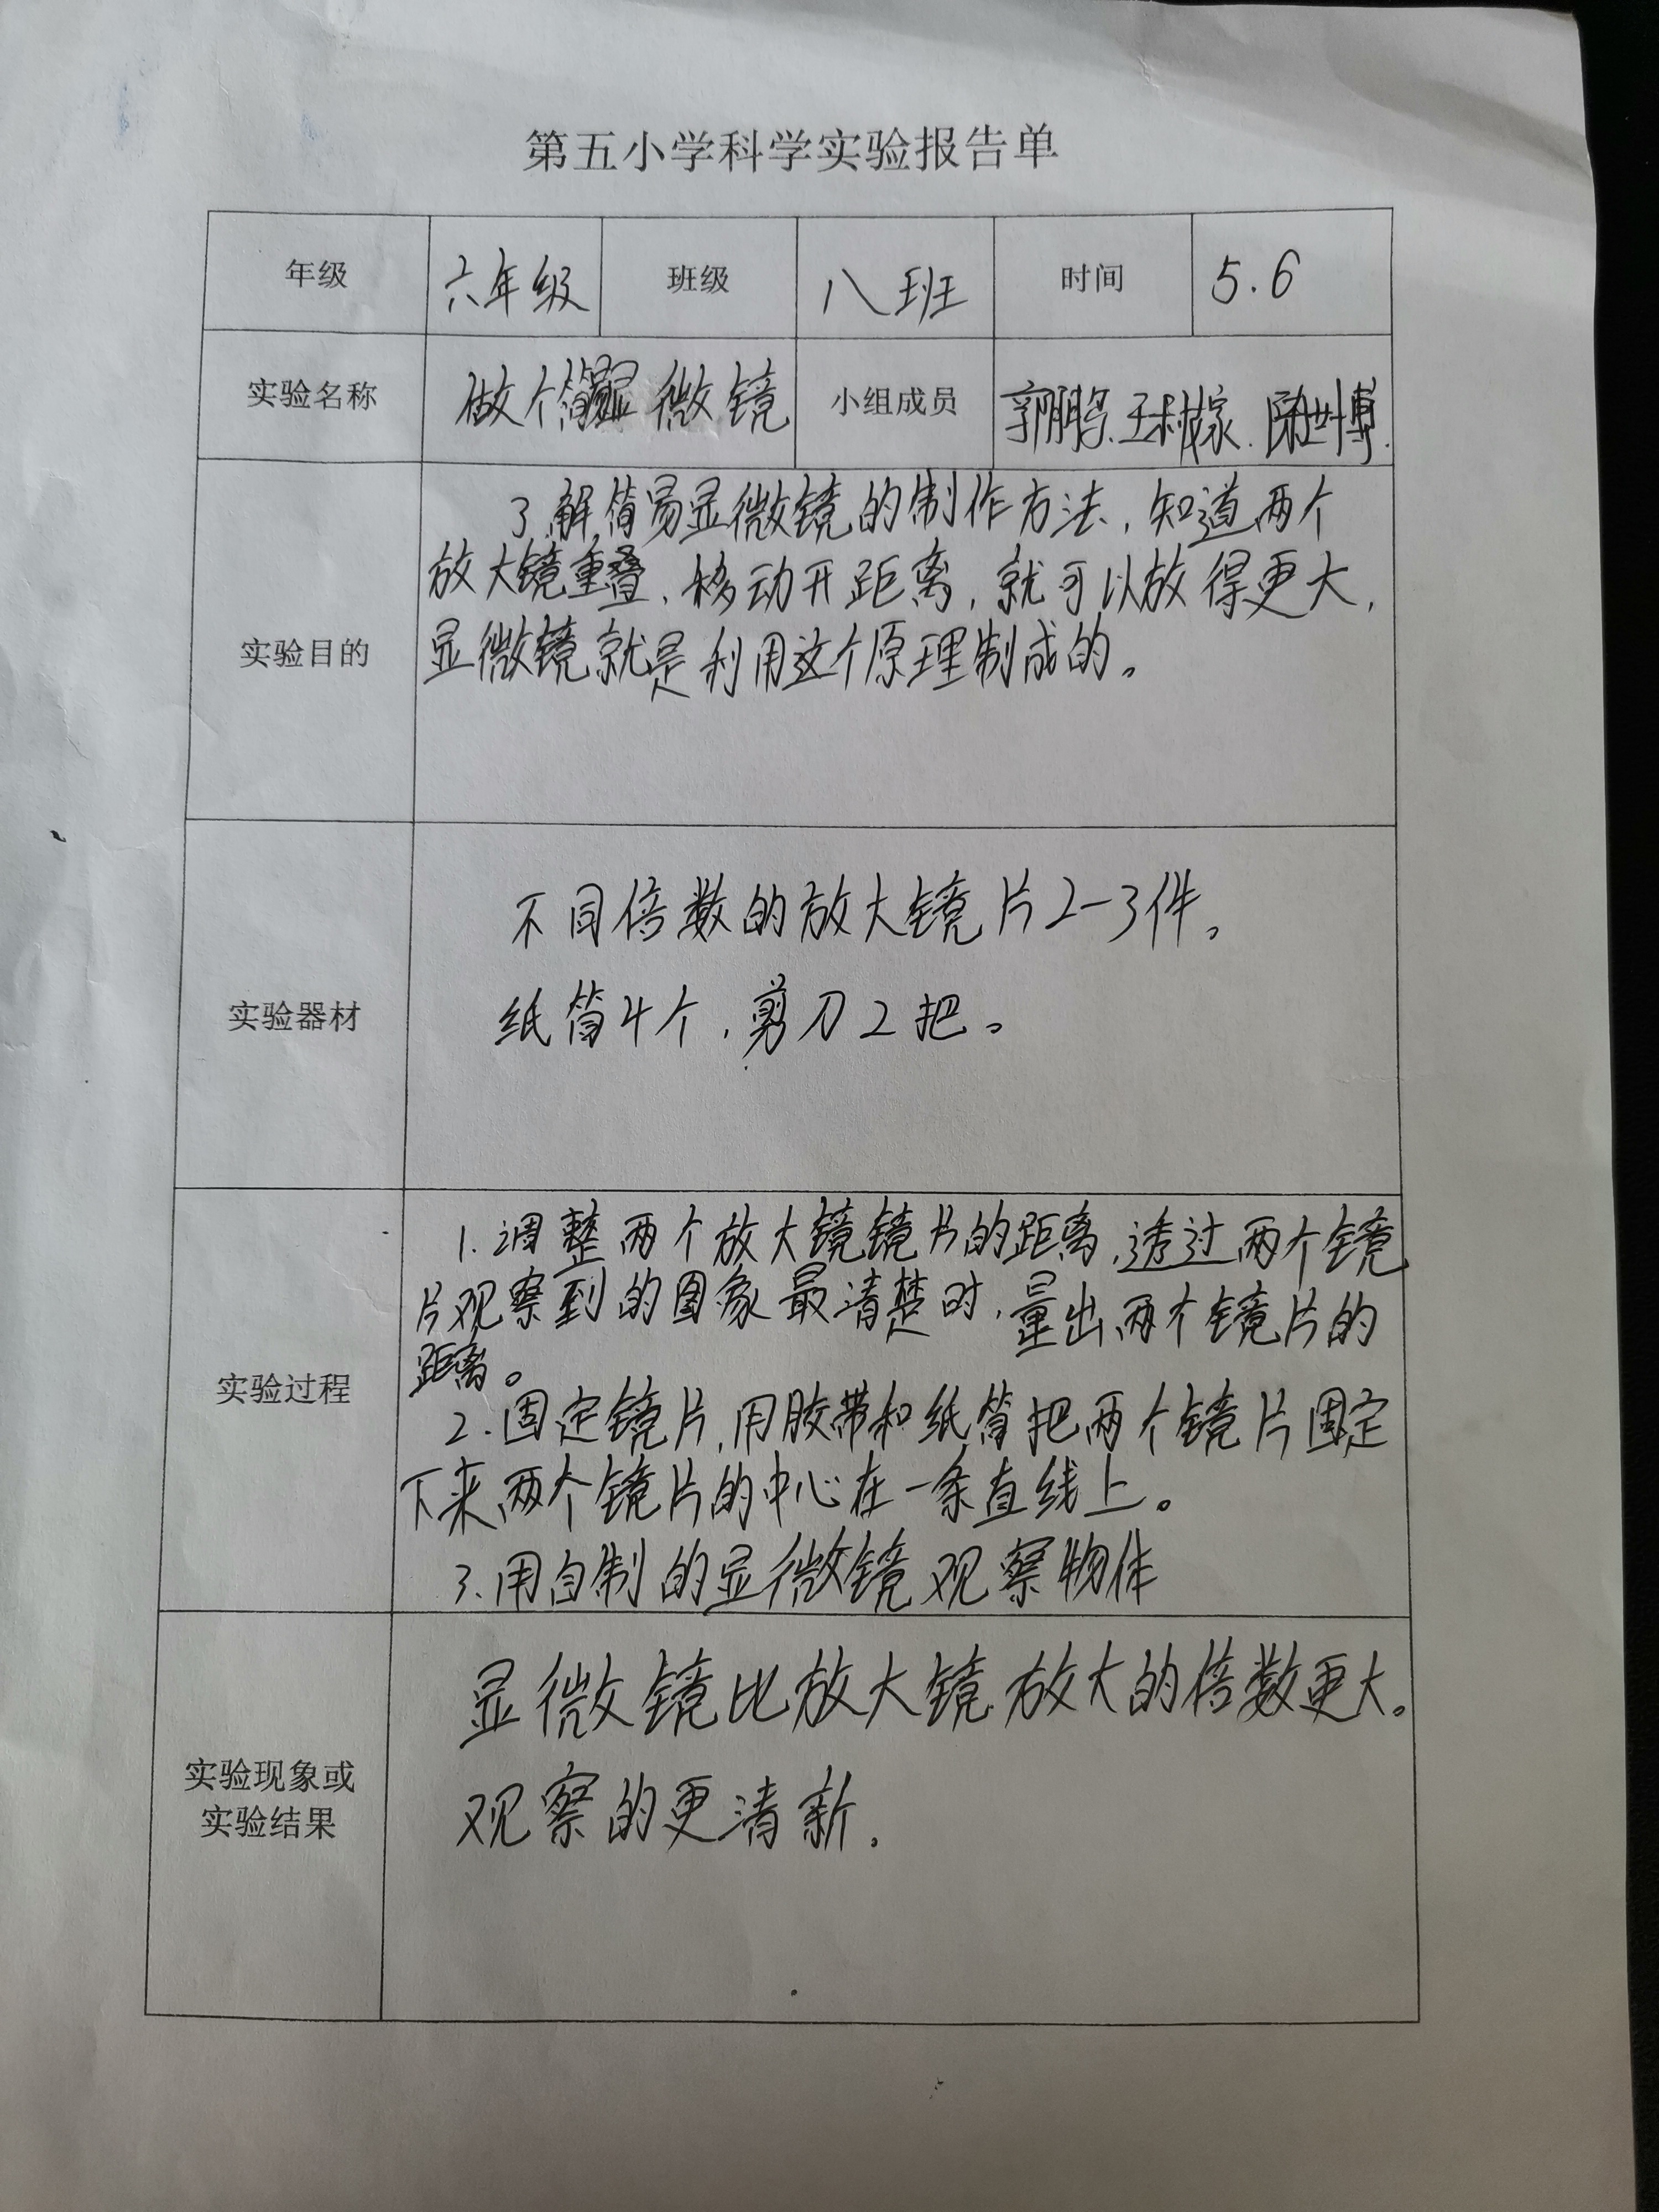 第五小学科学实验报告单
年级 六年级 班级 八班 时间 5.6
实验名称 做个简易显微镜 小组成员 郭鹏 王 陈世博.
实验目的
了解简易显微镜的制作方法,知道两个
放大镜重叠、移动开距离,就可以放得更大,
显微镜就是利用这个原理制成的。
实验器材
不同倍数的放大镜片2-3件。
纸筒4个,剪刀2把。
实验过程
1.调整两个放大镜镜片的距离,透过两个镜
片观察到的图象最清楚时,量出两个镜片的
距离。
2.固定镜片,用胶带和纸筒把两个镜片固定
下来,两个镜片的中心在一条直线上。
3.用自制的显微镜观察物体
实验现象或
实验结果
显微镜比放大镜放大的倍数更大。
观察的更清新.